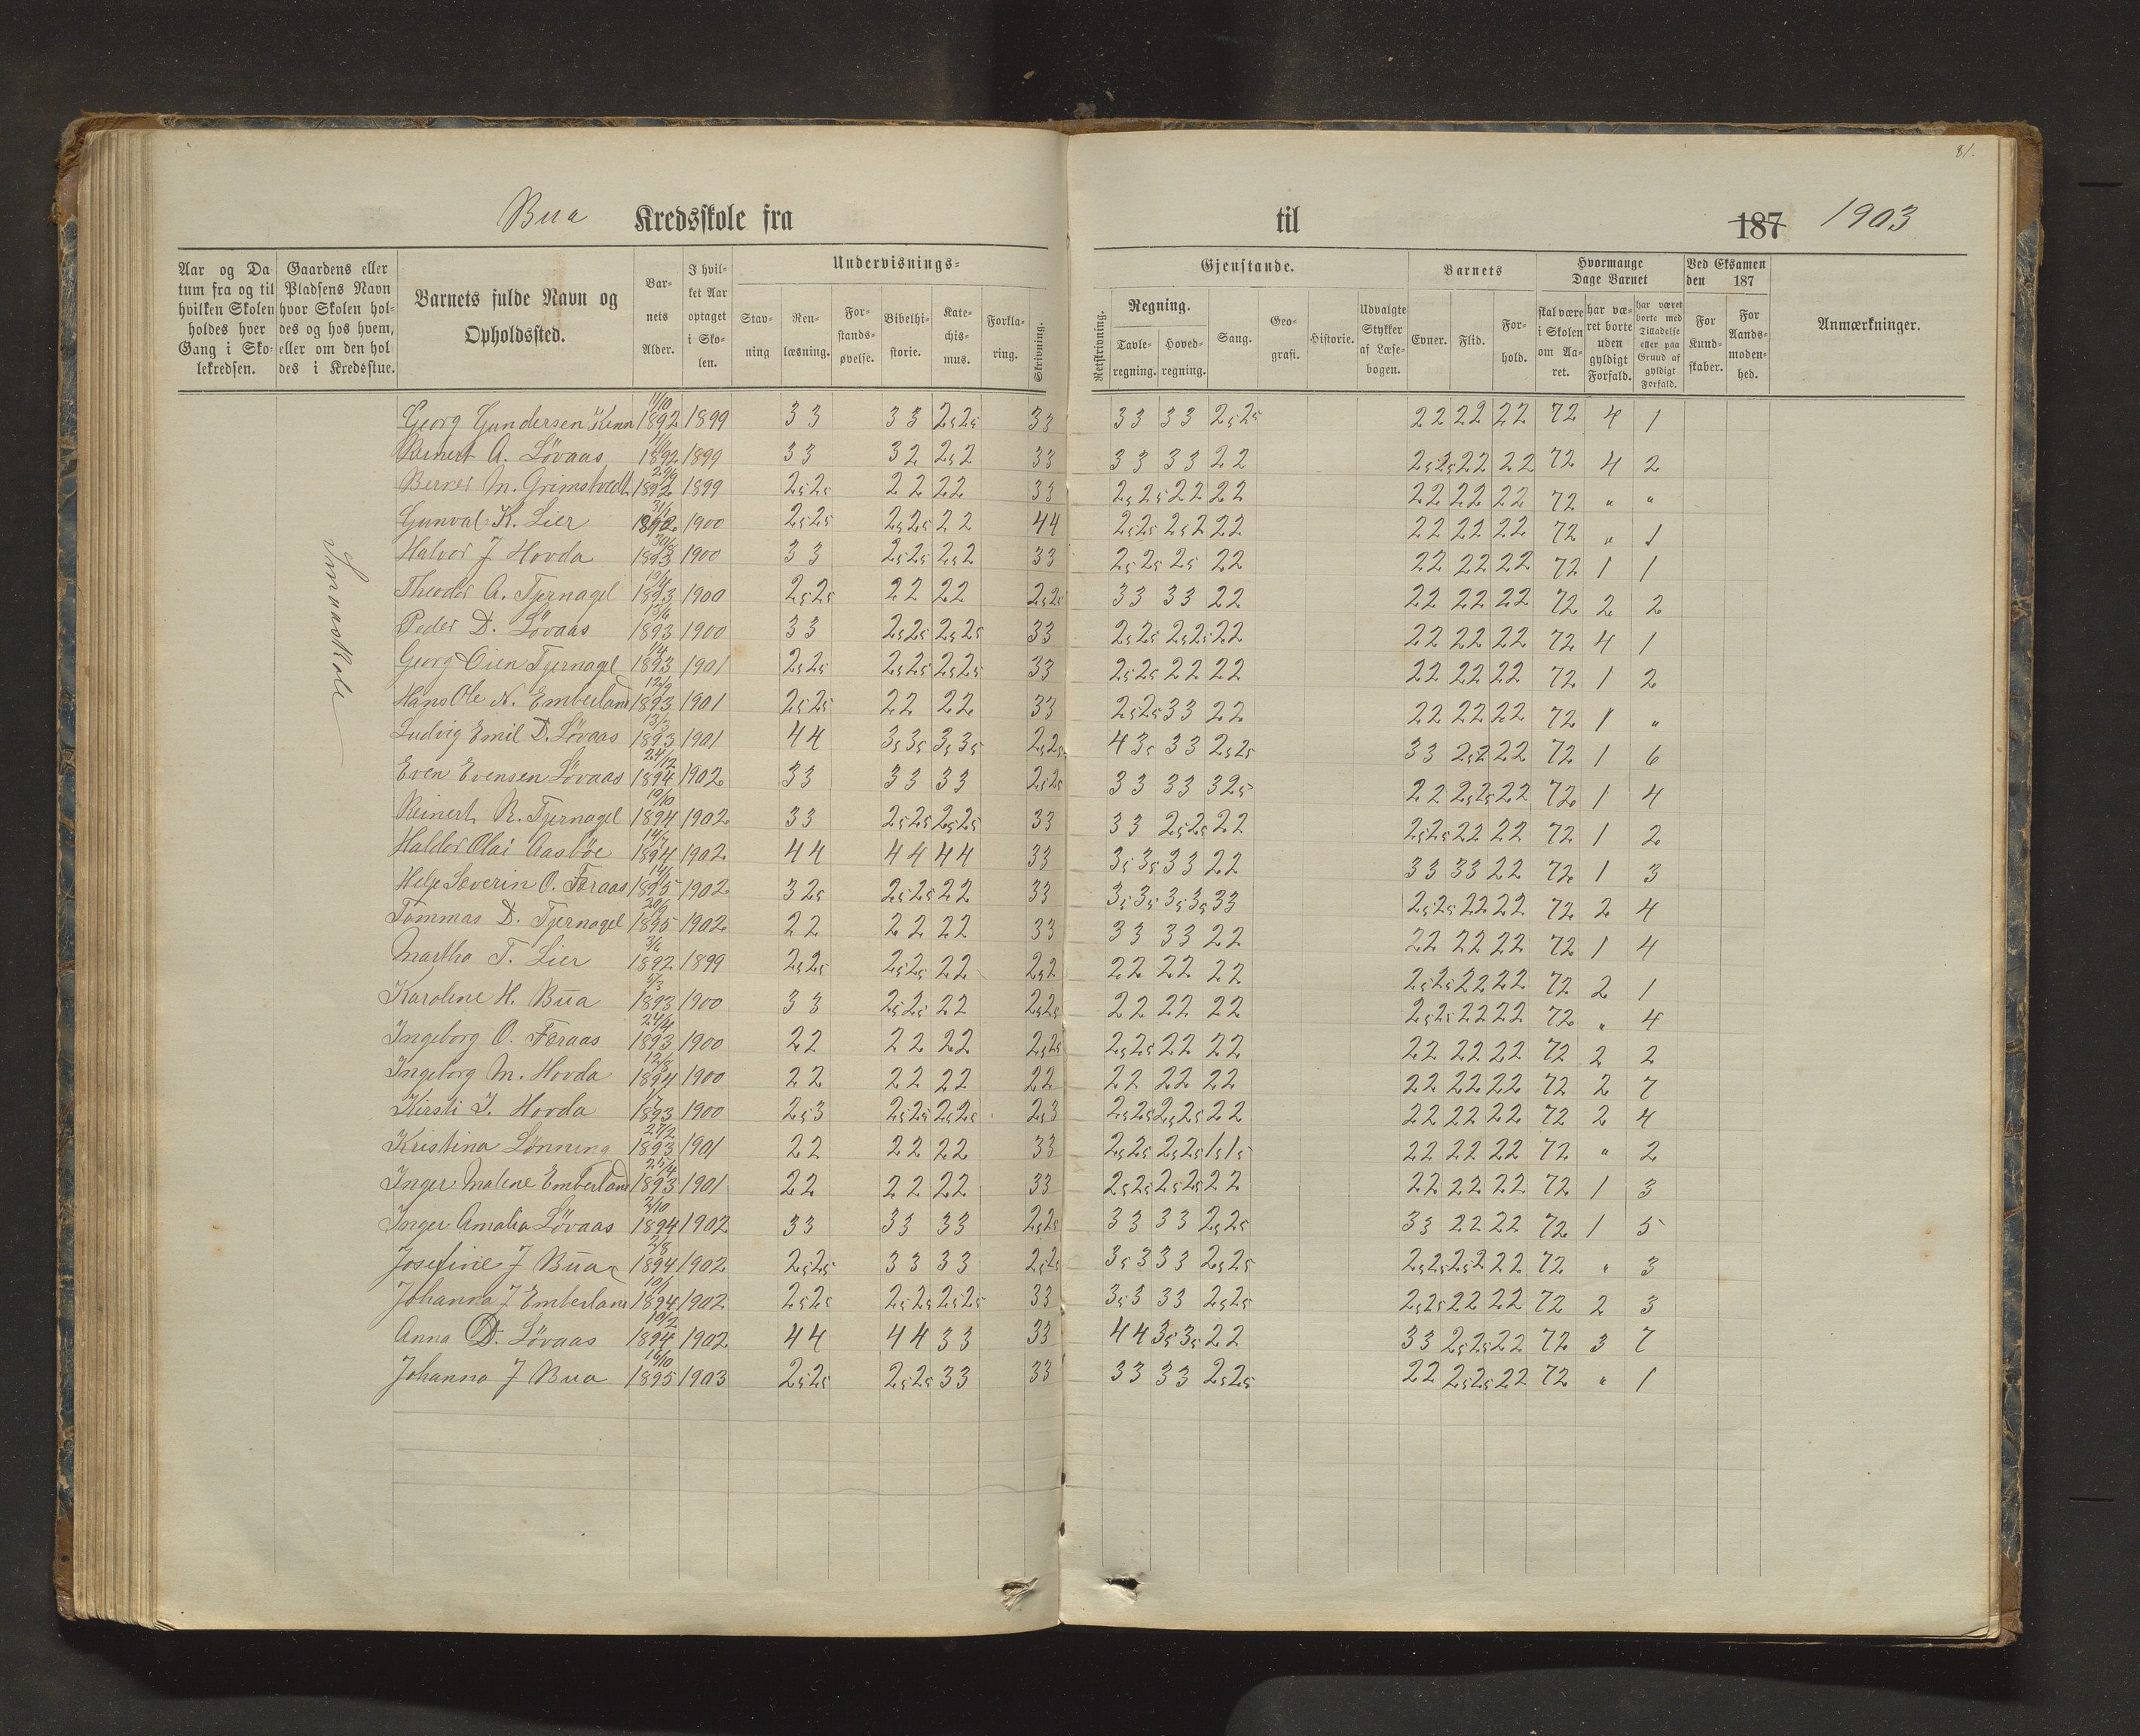 81.
Bua Kredsskole fra til 187 1903
Aar og Datum fra og til hvilken Skolen holdes hver Gang i Skolekredsen.
Gaardens eller Pladsens Navn hvor Skolen holdes og hos hvem, eller om den holdes i Kredsstue.
Barnets fulde Navn og Opholdssted.
Barnets Alder.
I hvilket Aar optaget i Skolen.
Undervisnings- Gjenstande.
Stavning
Renlæsning.
Forstandsøvelse.
Bibelhistorie.
Katechismus.
Forklaring.
Skrivning.
Retskrivning.
Regning.
Tavleregning.
Hovedregning.
Sang.
Geografi.
Historie.
Udvalgte Stykker af Læsebogen.
Barnets
Evner.
Flid.
Forhold.
Hvormange Dage Barnet
skal være i Skolen om Aaret.
har været borte uden gyldigt Forfald.
har været borte med Tilladelse eller paa Grund af gyldigt Forfald.
Ved Eksamen den 187
For Kundskaber.
For Aandsmodenhed.
Anmærkninger.
Smaaskole
Georg Gundersen 11/10 1892 1899 3 3 3 3 2,5 2,5 3 3 3 3 3 3 2,5 2,5 2 2 2 2 2 2 72 4 1
A. Lövaas 1892 1899 3 3 3 2 2,5 2 3 3 3 3 3 3 2 2 2,5 2,5 2 2 2 2 72 4 2
Berner M. Grimstvedt 1892 1899 2,5 2,5 2 2 2 2 3 3 2,5 2,5 2 2 2 2 2 2 2 2 2 2 72 " "
Gunval K. Lier 1892 1900 2,5 2,5 2,5 2,5 2 2 4 4 2,5 2,5 2,5 2 2 2 2 2 2 2 2 2 72 " 1
Halvor J Hovda 1893 1900 3 3 2,5 2,5 2,5 2 3 3 2,5 2,5 2,5 2 2 2 2 2 2 2 2 72 1 1
Theodor A. Tjernagel 1893 1900 2,5 2,5 2 2 2 2 2,5 2,5 3 3 3 3 2 2 2 2 2 2 2 2 72 2 2
Peder D. Lövaas 13/6 1893 1900 3 3 2,5 2,5 2,5 2,5 3 3 2,5 2,5 2,5 2,5 2 2 2 2 2 2 2 2 72 4 1
Georg Oien Tjernagel 1/4 1893 1901 2,5 2,5 2,5 2,5 2,5 2,5 3 3 2,5 2,5 2 2 2 2 2 2 2 2 2 2 72 1 2
Hans Ole N. Emberland 12/9 1893 1901 2,5 2,5 2 2 2 2 3 3 2,5 2,5 3 3 2 2 2 2 2 2 2 2 72 1 "
Ludvig Emil D. Lövaas 13/3 1893 1901 4 4 3,5 3,5 3,5 3,5 2,5 2,5 4 3,5 3 3 2,5 2,5 3 3 2,5 2 2 2 72 1 6
Even Evensen Lövaas 24/12 1894 1902 3 3 3 3 3 3 2,5 2,5 3 3 3 3 3 2,5 2 2 2,5 2,5 2 2 72 1 4
Reinert R. Tjernagel 19/10 1894 1902 3 3 2,5 2,5 2,5 2,5 3 3 3 3 2,5 2,5 2 2 2,5 2,5 2 2 2 2 72 1 2
Haldor Olai Aasböe 14/7 1894 1902 4 4 4 4 4 4 3 3 3,5 3,5 3 3 2 2 3 3 3 3 2 2 72 1 3
Helje Severin O. Föraas 1895 1902 3 2,5 2,5 2,5 2 2 3 3 3,5 3,5 3,5 3,5 3 3 2,5 2,5 2 2 2 2 72 2 4
Tommas D. Tjernagel 20/9 1895 1902 2 2 2 2 2 2 3 3 3 3 3 3 2 2 2 2 2 2 2 2 72 1 4
Martha T. Lier 3/6 1892 1899 2,5 2,5 2,5 2,5 2 2 2,5 2 2 2 2 2 2 2 2,5 2,5 2 2 2 2 72 2 1
Karoline H. Bua 5/3 1893 1900 3 3 2,5 2,5 2 2 2,5 2,5 2 2 2 2 2 2 2,5 2,5 2 2 2 2 72 " 4
Ingeborg O. Föraas 24/4 1893 1900 2 2 2 2 2 2 2,5 2,5 2,5 2,5 2 2 2 2 2 2 2 2 2 2 72 2 2
Ingeborg M. Hovda 12/8 1894 1900 2 2 2 2 2 2 2 2 2 2 2 2 2 2 2 2 2 2 2 2 72 2 7
Kirsti J. Hovda 1/7 1893 1900 2,5 3 2,5 2,5 2,5 2,5 2,5 3 2,5 2,5 2,5 2,5 2 2 2 2 2 2 2 2 72 2 4
Kristina Lönning 27/2 1893 1901 2 2 2 2 2 2 3 3 2,5 2,5 2,5 2,5 1,5 1,5 2 2 2 2 2 2 72 " 2
Inger Malene Emberland 25/4 1893 1901 2 2 2 2 2 2 3 3 2,5 2,5 2,5 2,5 2 2 2 2 2 2 2 2 72 1 3
Inger Amalia Lövaas 2/10 1894 1902 3 3 3 3 3 3 2,5 2,5 3 3 3 3 2,5 2,5 3 3 2 2 2 2 72 1 5
Josefine J Bua 2/8 1894 1902 2,5 2,5 3 3 3 3 2,5 2,5 3,5 3 3 3 2,5 2,5 2,5 2,5 2,5 2 2 2 72 " 3
Johanna J Emberland 10/1 1894 1902 2,5 2,5 2,5 2,5 2,5 2,5 3 3 3,5 3 3 3 2,5 2,5 2,5 2,5 2 2 2 2 72 2 3
Anna D. Lövaas 19/2 1894 1902 4 4 4 4 3 3 3 3 4 4 3,5 3,5 2 2 3 3 2,5 2,5 2 2 72 3 7
Johanna J Bua 16/10 1895 1903 2,5 2,5 2,5 2,5 3 3 3 3 3 3 3 3 2,5 2,5 2 2 2,5 2,5 2 2 72 " 1